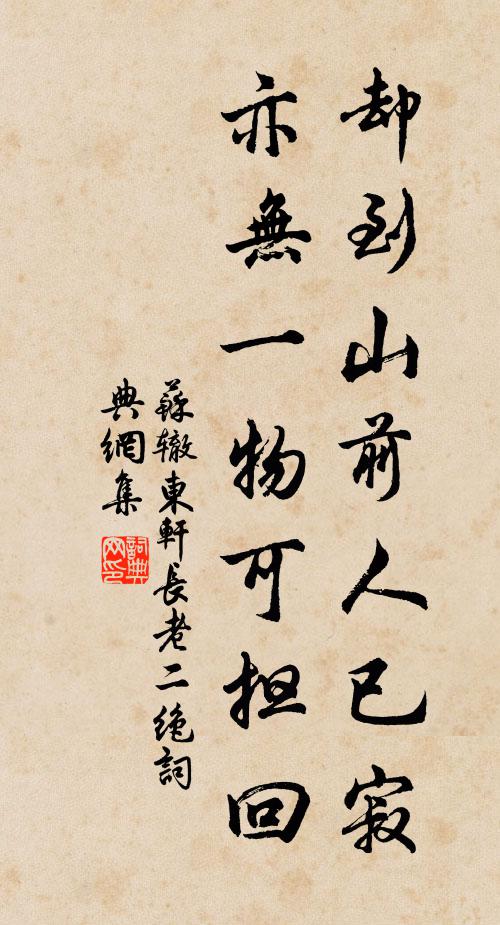 却到山前人已寂
亦無一物可担回
蘇辙東軒長老二绝詞
典網集
詞典
网印